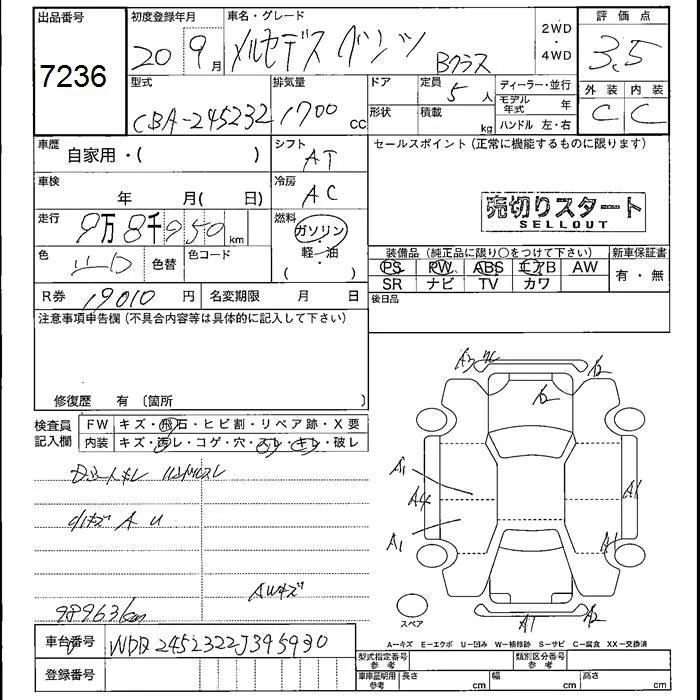 出品番号
7236
初度登録年月
20 9月
車名・グレード
メルセデス ベンツ
Bクラス
2WD
・
4WD
評価点
3.5
型式
CBA-245232
排気量
1700 cc
ドア
形状
定員
5人
積載
kg
ディーラー・並行
モデル年式 年
ハンドル 左・右
外装 内装
C C
車歴
自家用・( )
シフト
AT
セールスポイント (正常に機能するものに限ります)
車検
年 月( 日)
冷房
AC
売切りスタート
SELLOUT
走行
9万8千950 km
燃料
ガソリン
・
軽・油
( )
色
シロ
色替
色コード
装備品 (純正品に限り○をつけて下さい)
新車保証書
PS PW ABS エアB AW
SR ナビ TV カワ
有・無
R券 19010 円
名変期限 月 日
後日品
注意事項申告欄 (不具合内容等は具体的に記入して下さい)
修復歴 有 〔箇所 〕
検査員
記入欄
FW キズ・飛石・ヒビ割・リペア跡・X要
内装 キズ・汚レ・コゲ・穴・スレ・キレ・破レ
ハンドルスレ
A U
98963km
A3 A2
A2
A1
A4 A1
A1 A1
A1 A2
スペア
A−キズ E−エクボ U−凹み W−補修跡 S−サビ C−腐食 XX−交換済
車台番号
WDD2452322J395930
登録番号
型式指定番号
参考
類別区分番号
参考
車庫証明用
参考
長さ cm
幅 cm
高さ cm